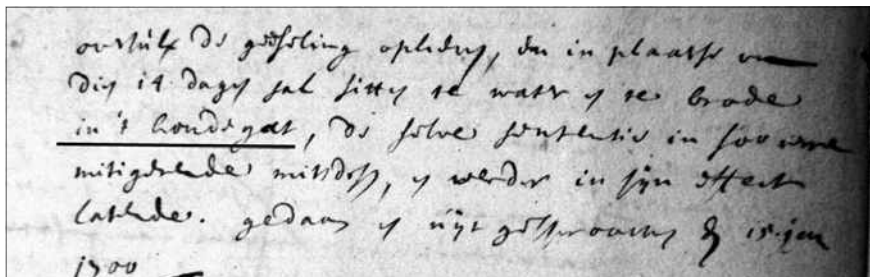 oversulx de geesseling opleden, en in plaatse van
dien 14 dagen sal sitten te water en te brode
in 't hondegat, de selve sententie in soo verre
mitigerende mitsdesen, en verder in sijn effect
latende. gedaan en uijt gesproocken den 15 jan
1700